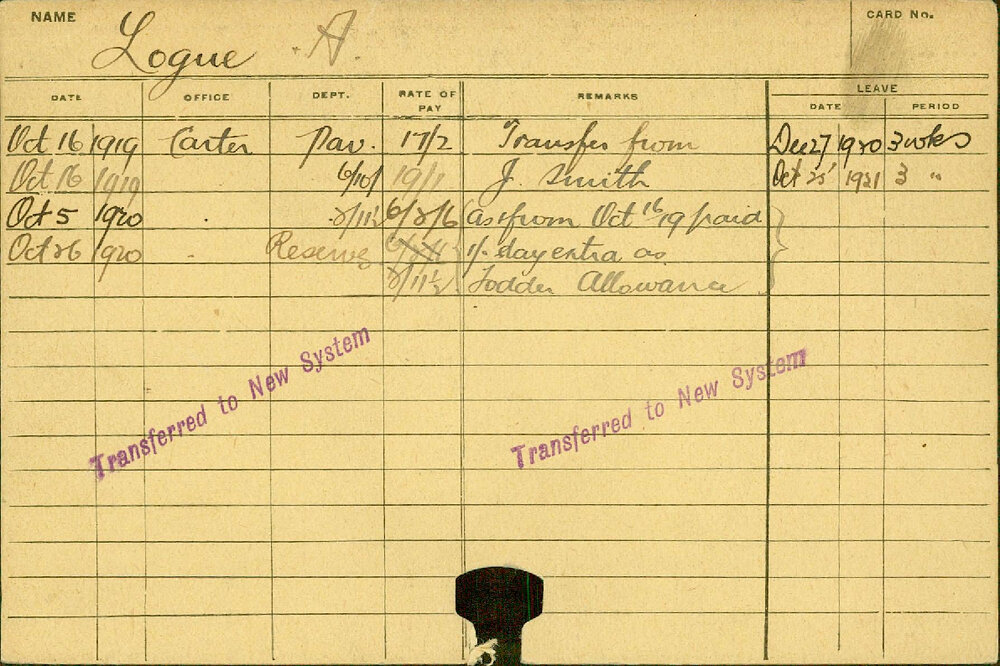 NAME Logue A. CARD No.
DATE OFFICE DEPT. RATE OF PAY REMARKS LEAVE
DATE PERIOD
Oct 16 1919 Carter Pav. 17/2 Transfer from Dec 27 1920 3 wks
Oct 16 1919 19/1 J. Smith Oct 25 1921 3 "
Oct 5 1920 6/2/6 (as from Oct 16 19 paid
Oct 26 1920 Reserve 1/- day extra as
Fodder Allowance
Transferred to New System
Transferred to New System